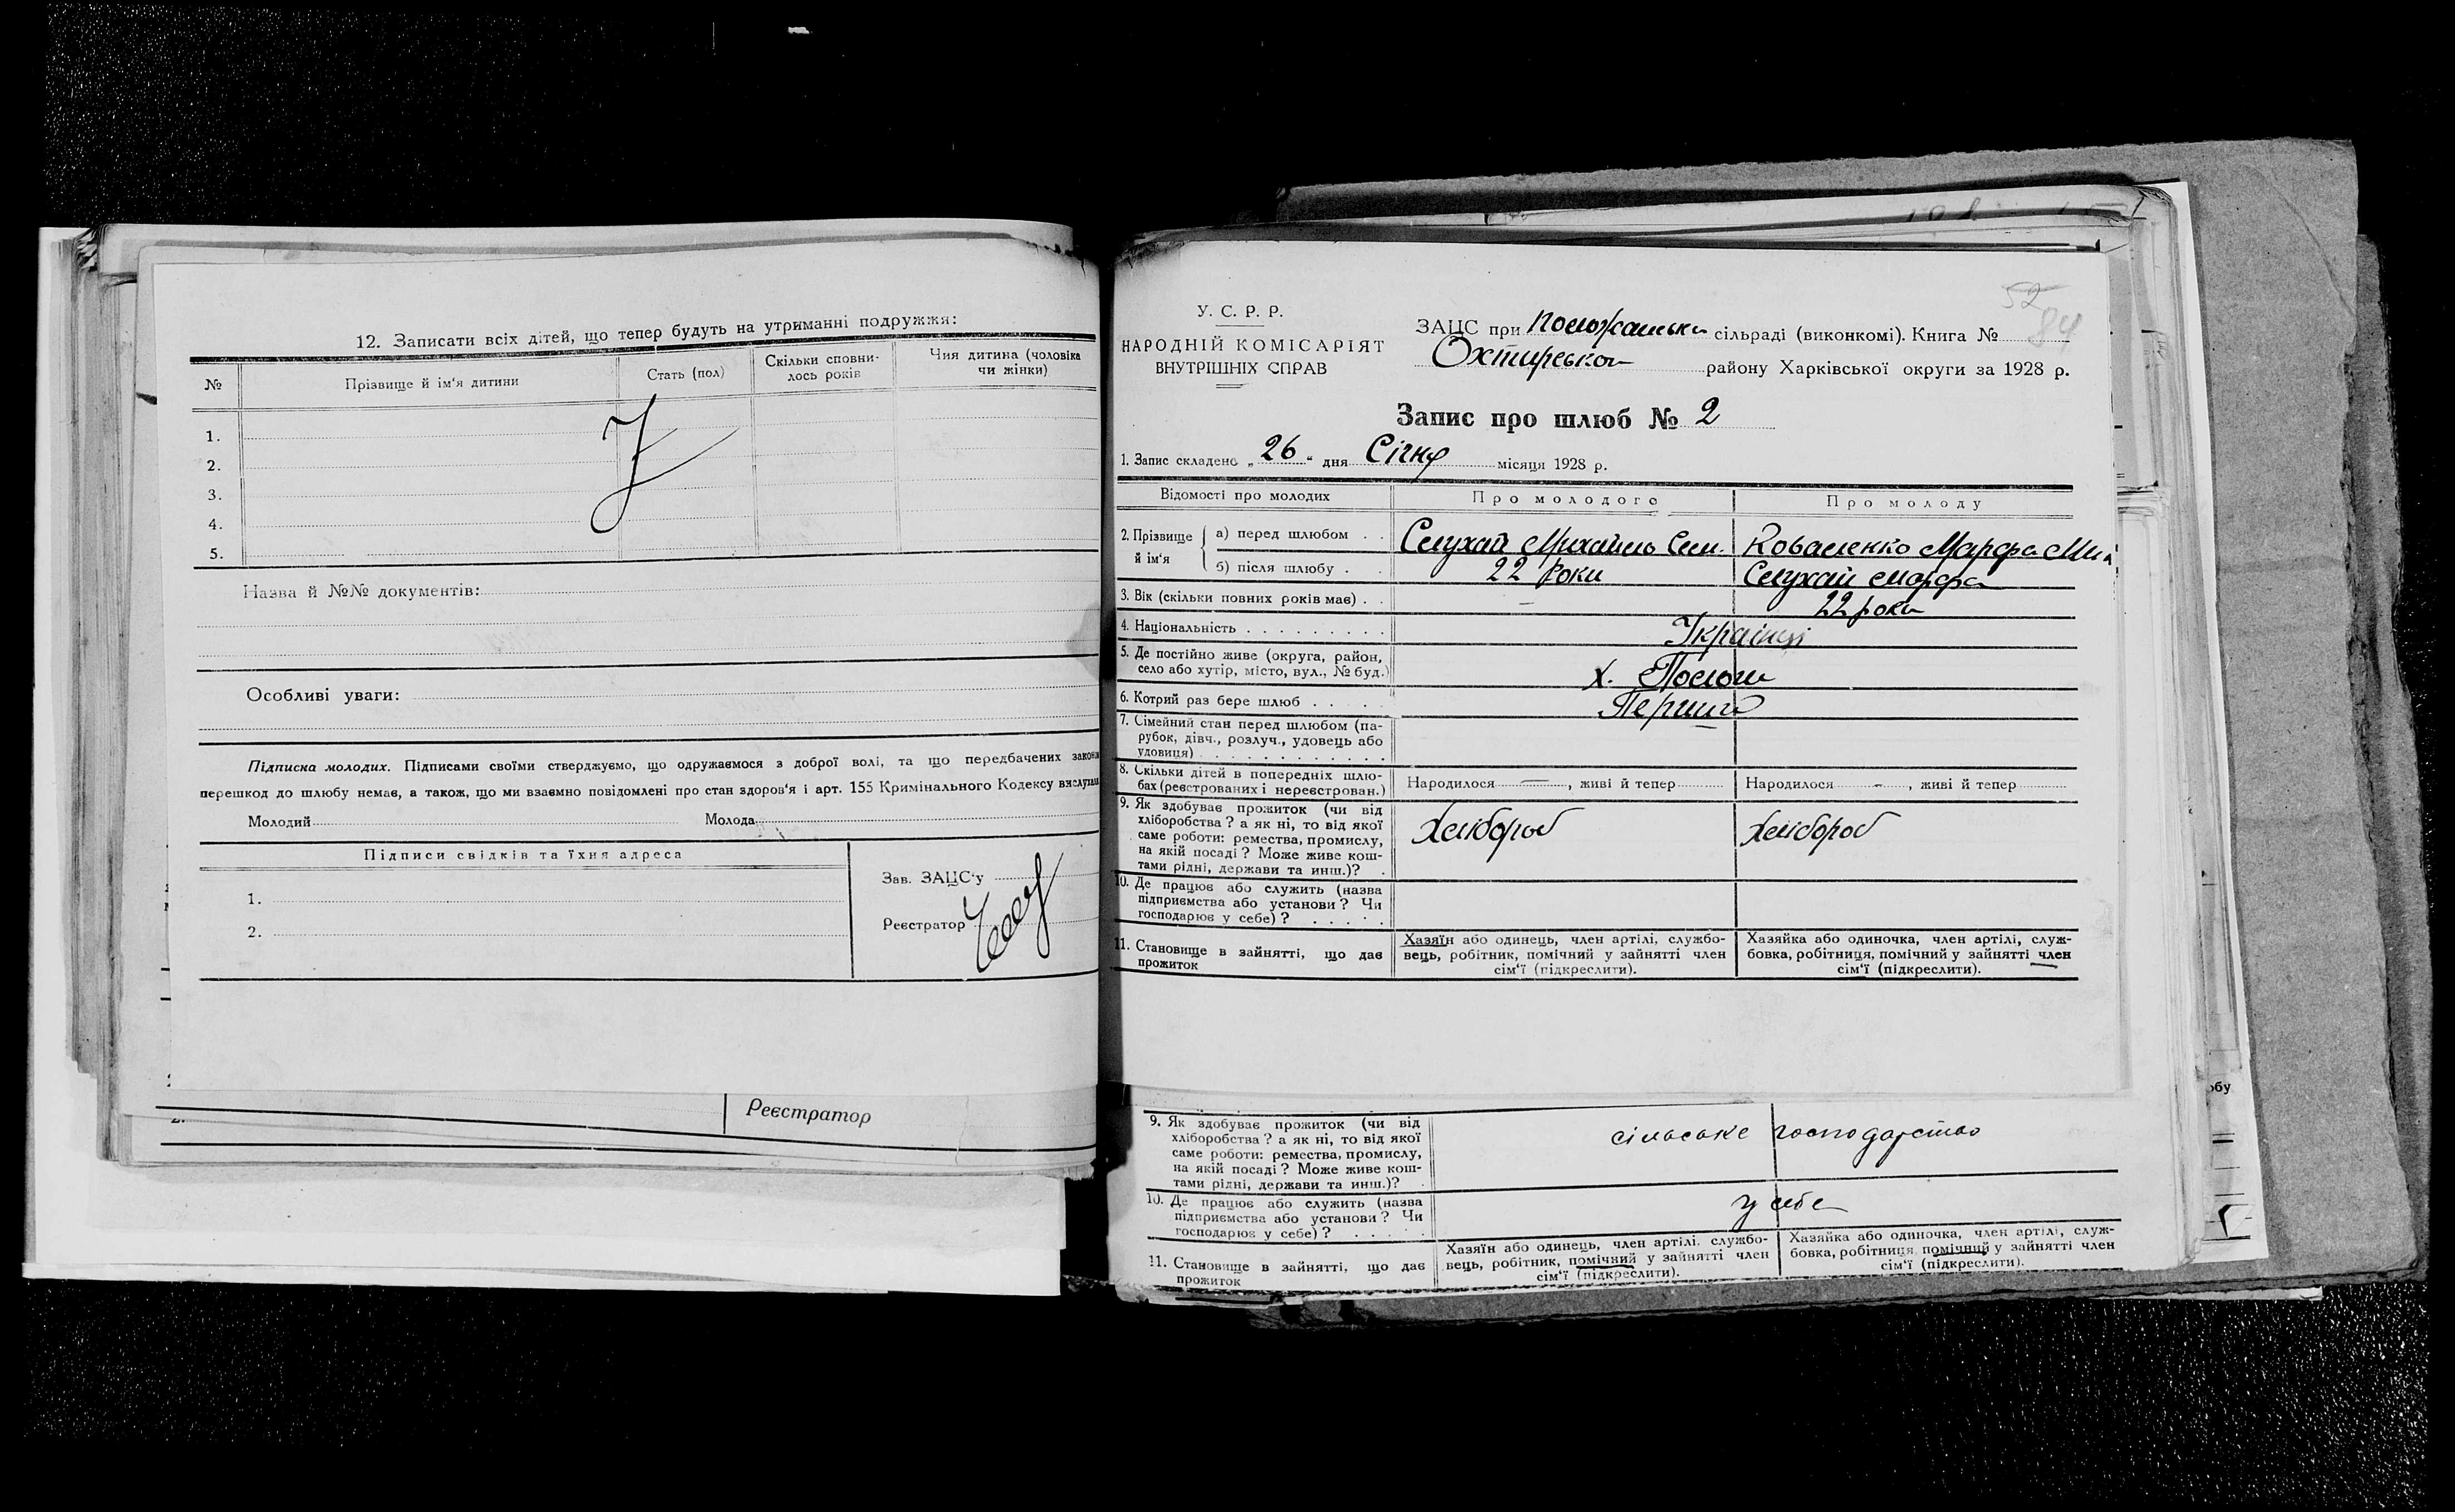 12. Записати всіх дітей, що тепер будуть на утриманні подружжя:
№ Прізвище й ім'я дитини Стать (пол) Скільки сповни-лось років Чия дитина (чоловіка чи жінки)
1.
2.
3.
4.
5.
Назва й №№ документів:
Особливі уваги:
Підписка молодих. Підписами своїми стверджуємо, що одружаємося з доброї волі, та що передбачених законом
перешкод до шлюбу немає, а також, що ми взаємно повідомлені про стан здоров'я і арт. 155 Кримінального Кодексу вислухали
Молодий Молода
Підписи свідків та їхня адреса
1.
2.
Зав. ЗАЦС'у
Реєстратор
Реєстратор
У. С. Р. Р.
НАРОДНІЙ КОМІСАРІЯТ
ВНУТРІШНІХ СПРАВ
52
84
ЗАЦС при сільраді (виконкомі). Книга №
Охтирськог району Харківської округи за 1928 р.
Запис про шлюб № 2
1. Запис складено „26" дня Січня місяця 1928 р.
Відомості про молодих Про молодого Про молоду
2. Прізвище й ім'я
а) перед шлюбом Слухай Михайло Сем. Коваленко Марфа Мик
б) після шлюбу 22 роки Слухай Марфа
3. Вік (скільки повних років має) – 22 роки
4. Національність Українці
5. Де постійно живе (округа, район,
село або хутір, місто, вул., № буд.) х. Пологи
6. Котрий раз бере шлюб Перший
7. Сімейний стан перед шлюбом (па-
рубок, дівч., розлуч., удовець або
удовиця)
8. Скільки дітей в попередніх шлю-
бах (реєстрованих і нереєстрован.) Народилося —, живі й тепер Народилося –, живі й тепер
9. Як здобуває прожиток (чи від
хліборобства? а як ні, то від якої
саме роботи: ремества, промислу,
на якій посаді? Може живе кош-
тами рідні, держави та инш.)?
Хлібороб Хлібороб
10. Де працює або служить (назва
підприємства або установи? Чи
господарює у себе)?
11. Становище в зайнятті, що дає
прожиток
Хазяїн або одинець, член артілі, службо-
вець, робітник, помічний у зайнятті член
сім'ї (підкреслити).
Хазяйка або одиночка, член артілі, служ-
бовка, робітниця, помічний у зайнятті член
сім'ї (підкреслити).
9. Як здобуває прожиток (чи від
хліборобства? а як ні, то від якої
саме роботи: ремества, промислу,
на якій посаді? Може живе кош-
тами рідні, держави та инш.)?
сільське господарство
10. Де працює або служить (назва
підприємства або установи? Чи
господарює у себе)?
у себе
11. Становище в зайнятті, що дає
прожиток
Хазяїн або одинець, член артілі, службо-
вець, робітник, помічний у зайнятті член
сім'ї (підкреслити).
Хазяйка або одиночка, член артілі, служ-
бовка, робітниця, помічний у зайнятті член
сім'ї (підкреслити).